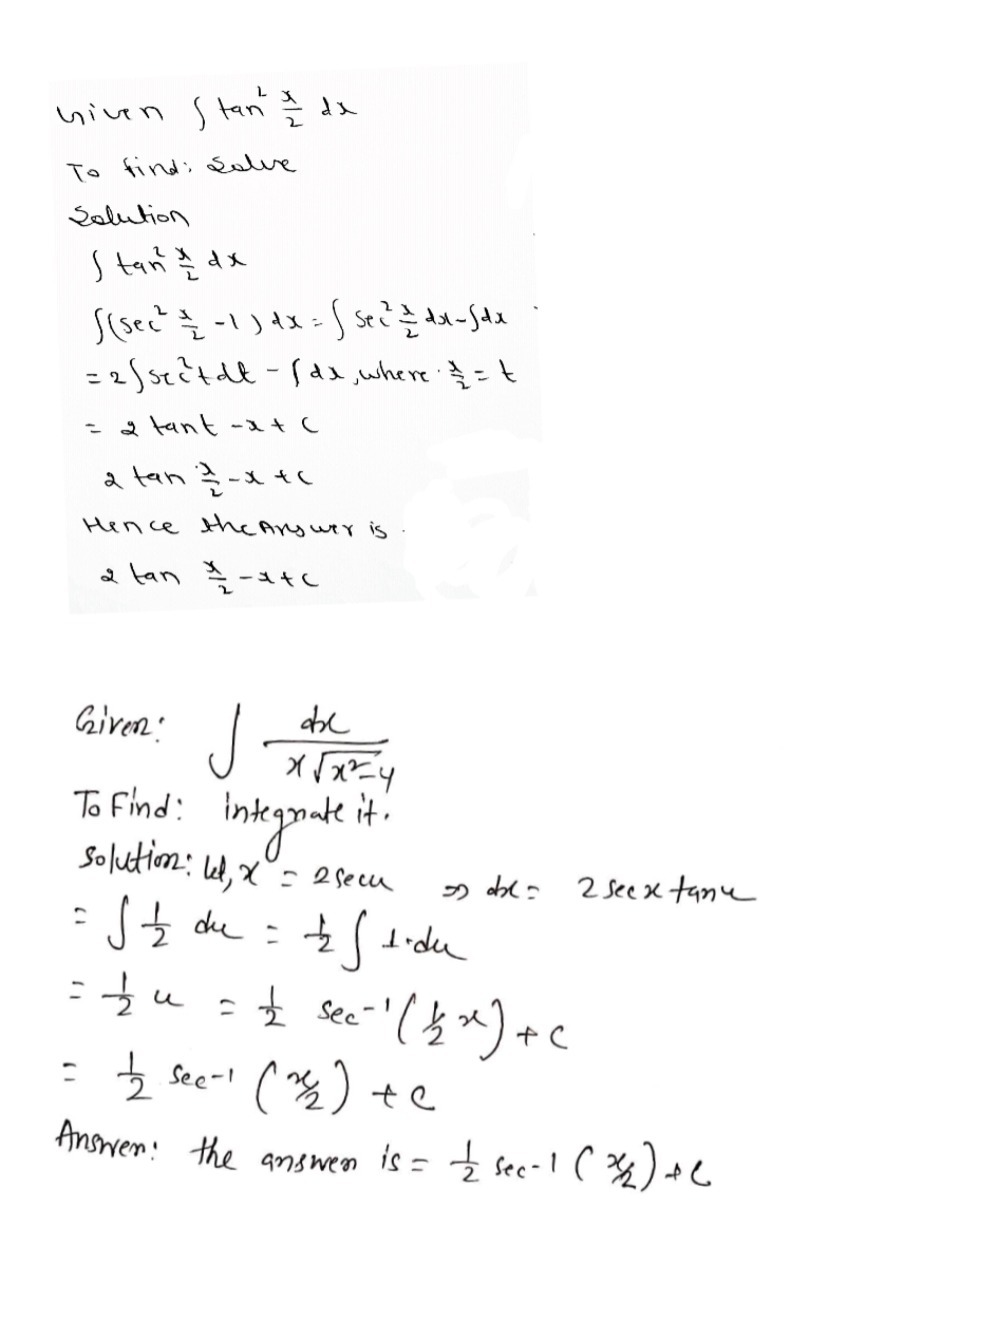 Given ∫ tan² x/2 dx
To find: Solve
Solution
∫ tan² x/2 dx
∫(sec² x/2 -1) dx = ∫ sec² x/2 dx - ∫dx
= 2∫sec²t dt - ∫dx, where x/2 = t
= 2 tant -x + C
2 tan x/2 -x +c
Hence the Answer is
2 tan x/2 -x+c
Given: ∫ dx / x√x²-4
To Find: integrate it.
Solution: let, x = 2secu ⇒ dx = 2 secx tanu
= ∫ 1/2 du = 1/2 ∫ 1·du
= 1/2 u = 1/2 sec-1 (1/2 x) + C
= 1/2 sec-1 (x/2) + C
Answer: the answer is = 1/2 sec-1 (x/2) + C